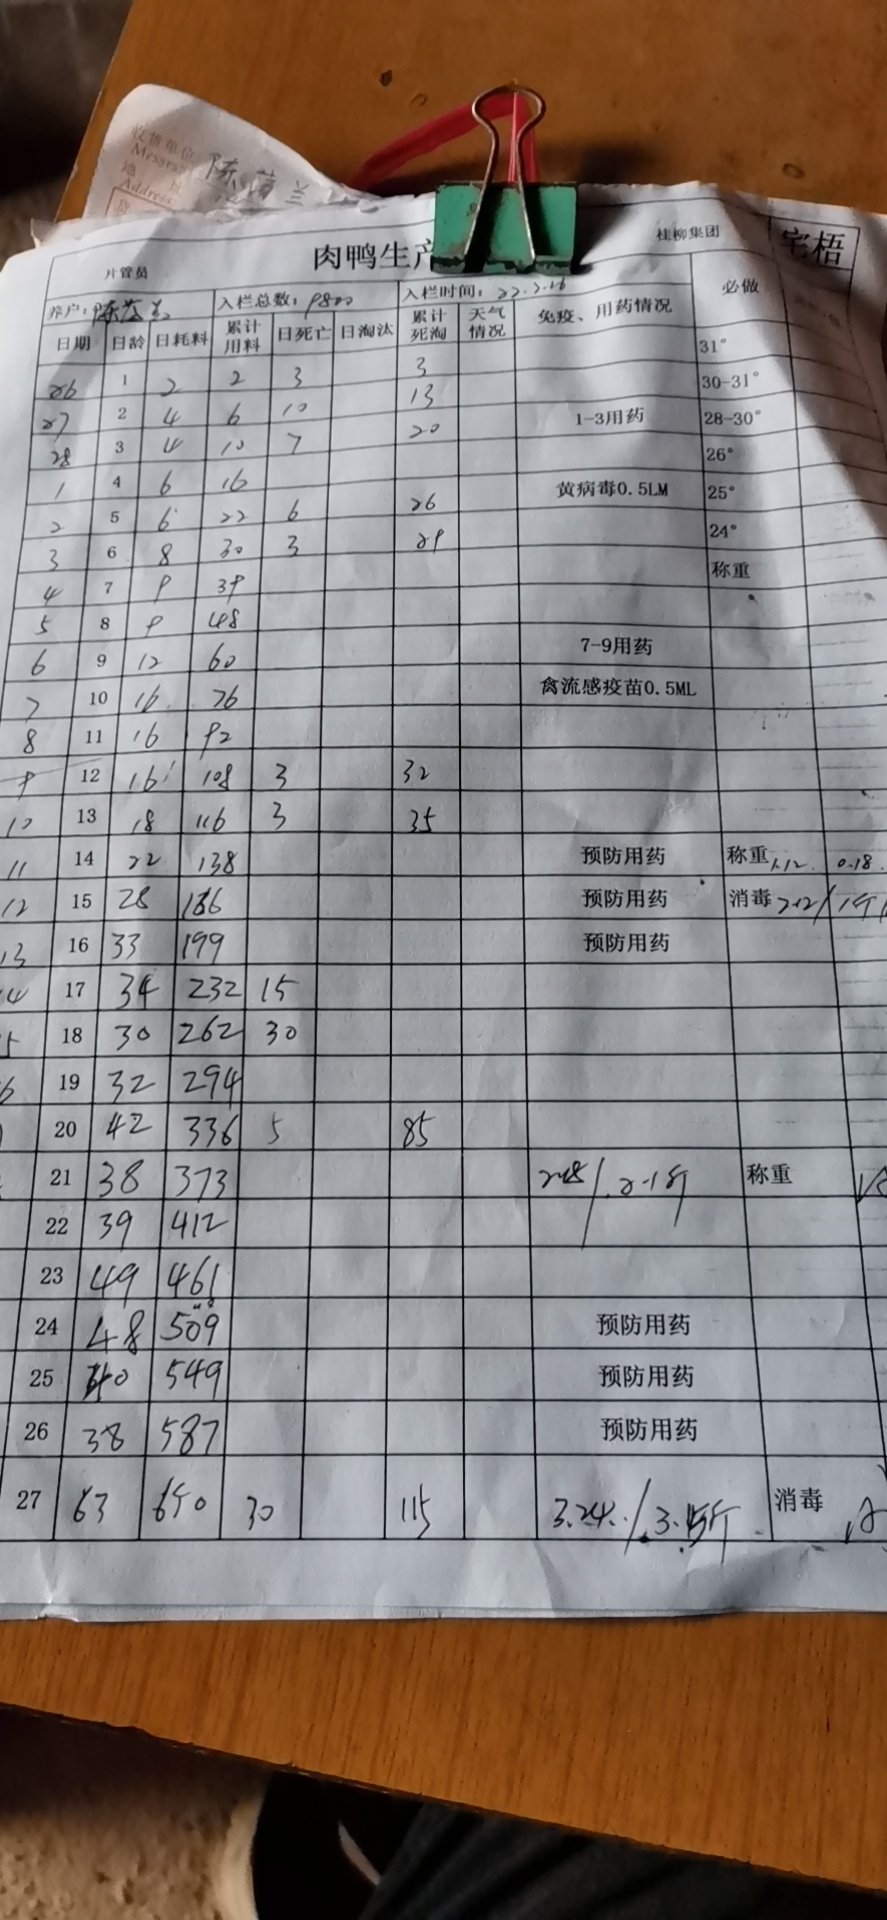 收货单位
Messrs
地 址
Address
陈 兰
肉鸭生产
桂柳集团
宅梧
片管员
养户: 陈 兰 入栏总数: 9800 入栏时间: 22.2.26 必做
日期 日龄 日耗料 累计用料 日死亡 日淘汰 累计死淘 天气情况 免疫、用药情况
31°
26 1 2 2 3 3 30-31°
27 2 4 6 10 13 1-3用药 28-30°
28 3 4 10 7 20 26°
1 4 6 16 黄病毒0.5LM 25°
2 5 6 22 6 26 24°
3 6 8 30 3 29 称重
4 7 9 39
5 8 9 48
6 9 12 60 7-9用药
7 10 16 76 禽流感疫苗0.5ML
8 11 16 92
9 12 16 108 3 32
10 13 18 116 3 35
11 14 22 138 预防用药 称重 1.12 0.18
12 15 28 166 预防用药 消毒
13 16 33 199 预防用药
14 17 34 232 15
15 18 30 262 30
19 32 294
20 42 336 5 85
21 38 373 称重
22 39 412
23 49 461
24 48 509 预防用药
25 40 549 预防用药
26 38 587 预防用药
27 63 650 30 115 3.24 消毒